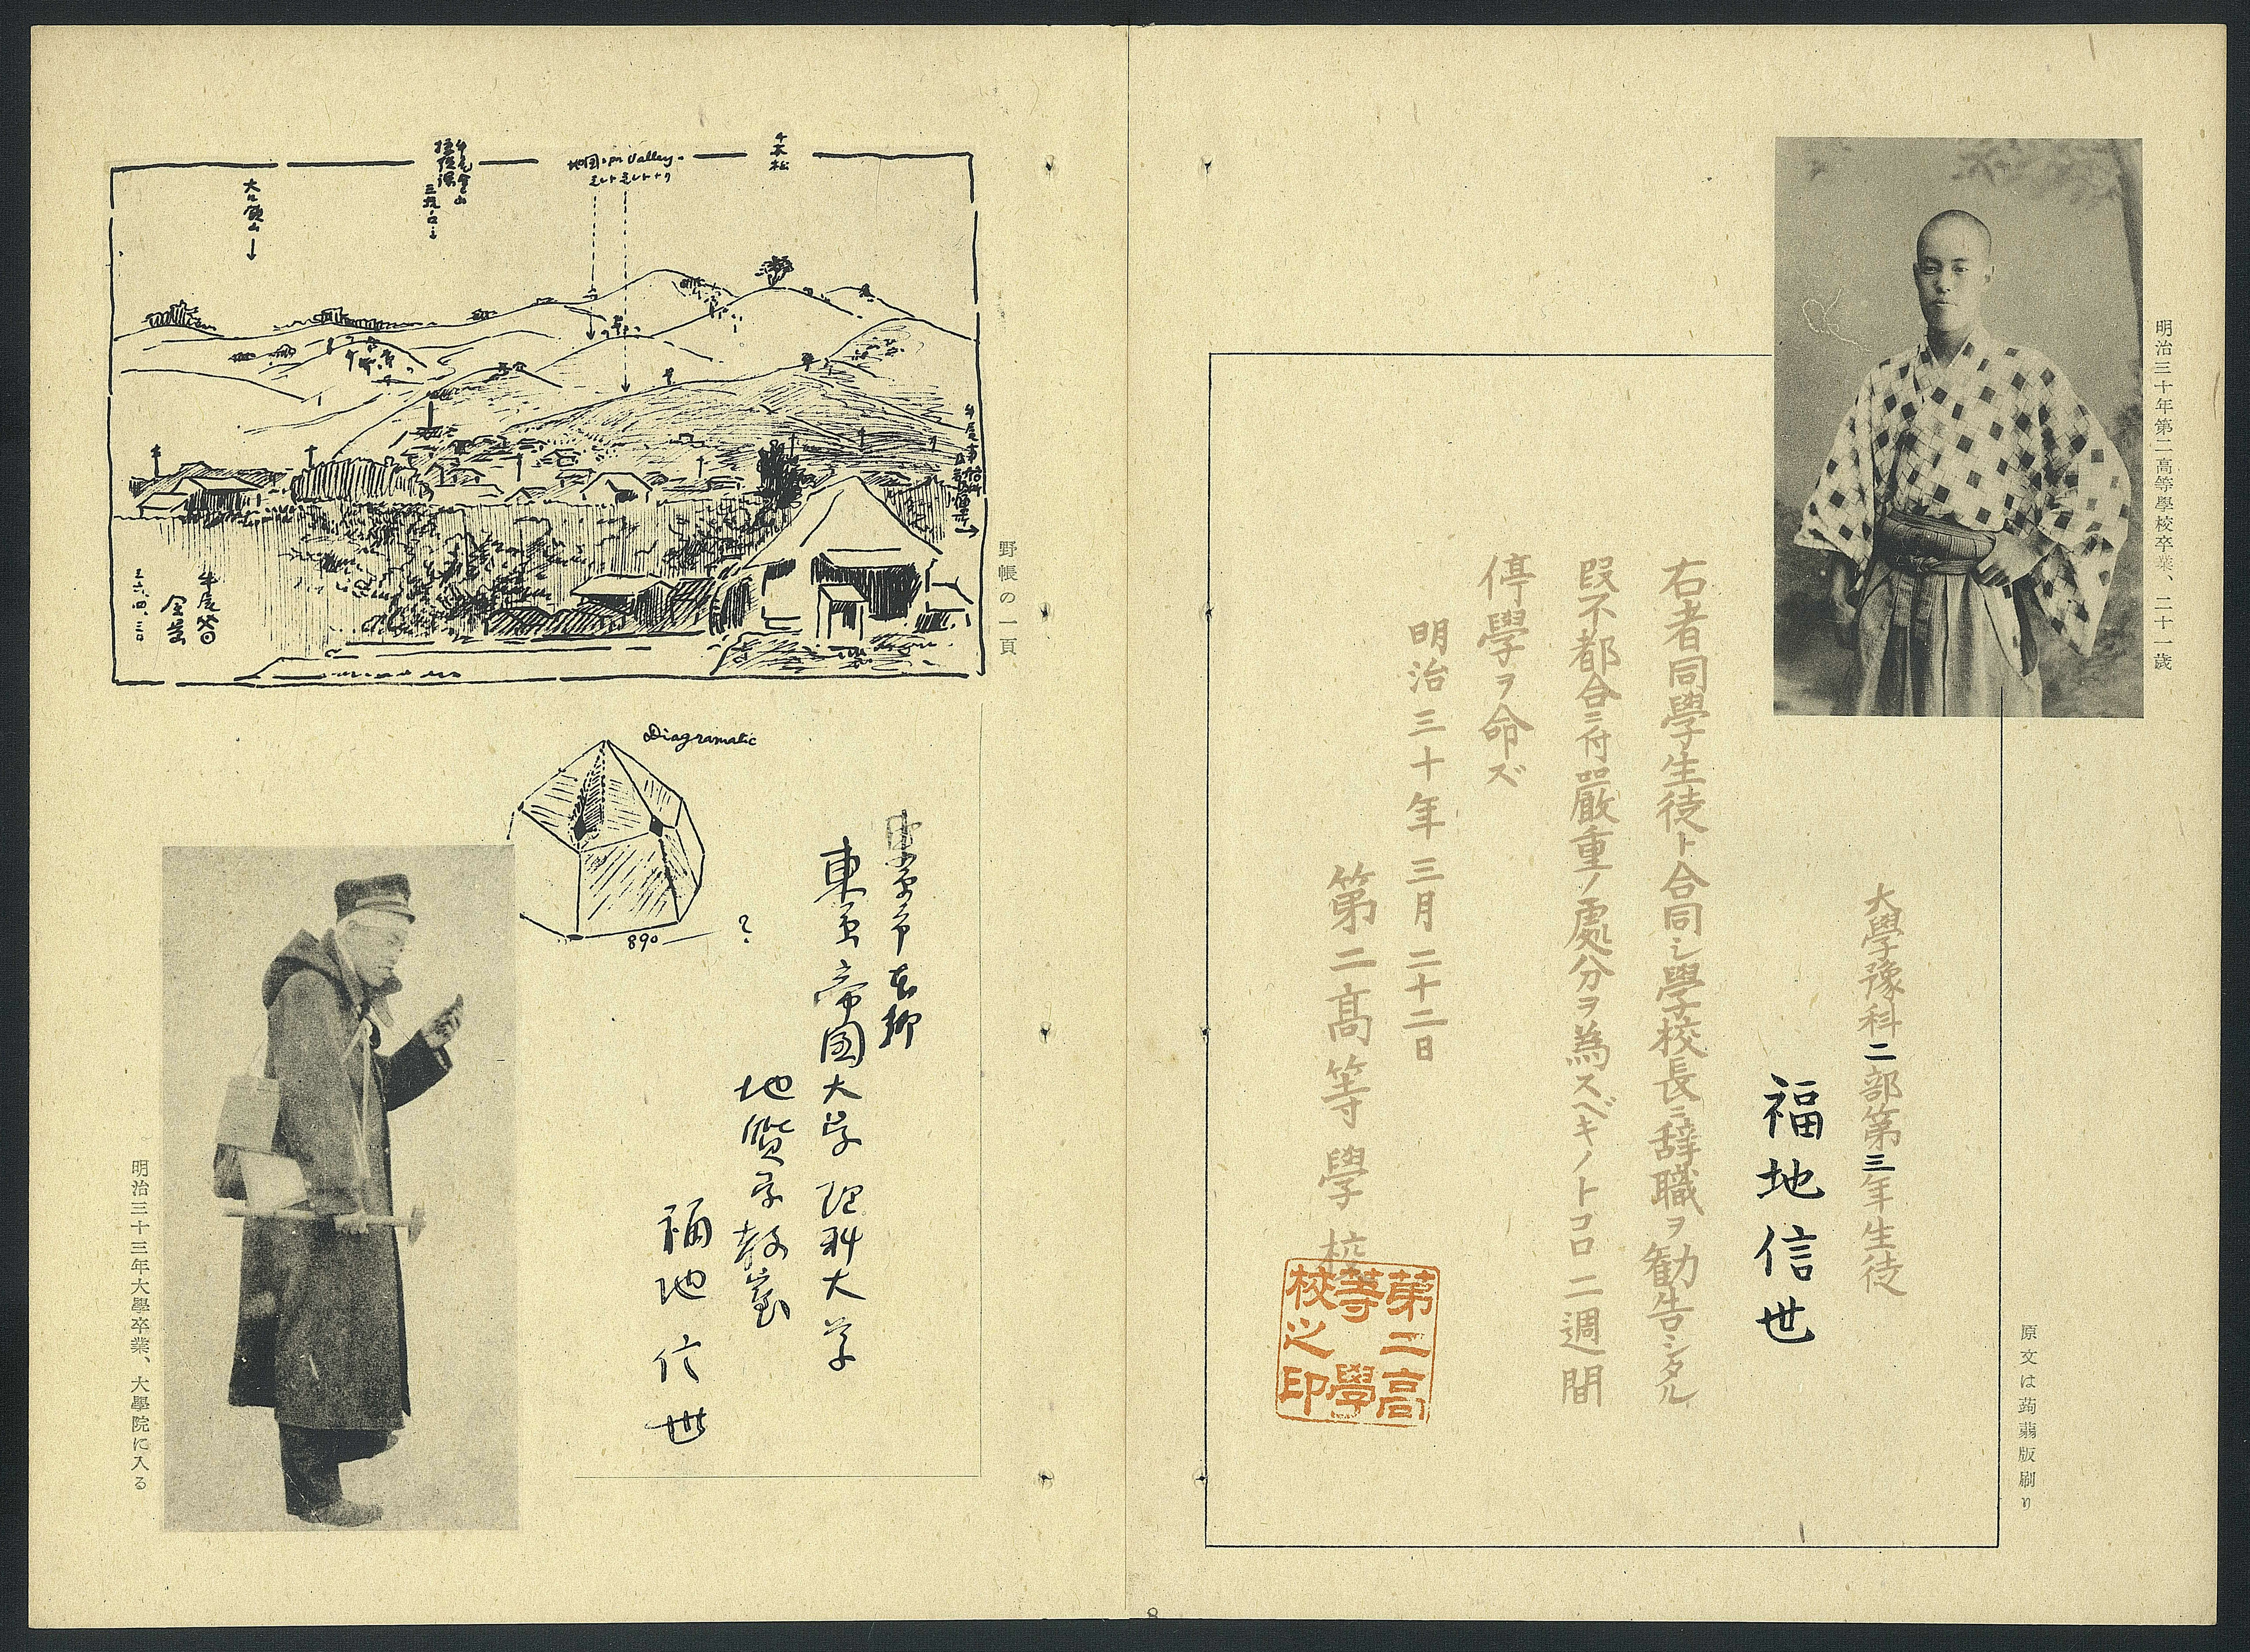 明治三十年第二高等學校卒業、二十一歲
原文は蒟蒻版刷り
大學豫科二部第三年生徒
福地信世
右者同學生徒ト合同シ學校長ニ辞職ヲ勧告シタル
段不都合ニ付嚴重ノ處分ヲ為スベキノトコロ二週間
停學ヲ命ズ
明治三十年三月二十二日
第二高等學校
第二高
等學
校之印
野帳の一頁
千本松
地図
Valley
三六、四、三〇
Diagramatic
890
?
東京帝国大学理科大学
地質学教室
福地信世
明治三十三年大學卒業、大學院に入る
8